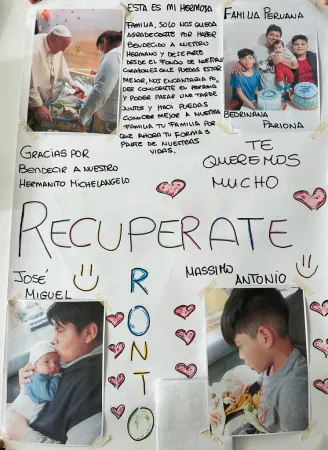 ESTA ES MI HERMOSA
FAMILIA, SOLO NOS QUEDA
AGRADECERTE POR HABER
BENDECIDO A NUESTRO
HERMANO Y DESEARTE
DESDE EL FONDO DE NUESTROS
CORAZONES QUE PUEDAS ESTAR
MEJOR, NOS ENCANTARIA PO-
DER CONOCERTE EN PERSONA
Y PODER PASAR UNA TARDE
JUNTOS Y HACI PUEDAS
CONOCER MEJOR A NUESTRA
FAMILIA TU FAMILIA POR
QUE AHORA TU FORMAS
PARTE DE NUESTRAS
VIDAS.
FAMILIA PERUANA
BEDRIÑANA
PARIONA
GRACIAS POR
BENDECIR A NUESTRO
HERMANITO MICHELANGELO
TE
QUEREMOS
MUCHO
RECUPERATE
PRONTO
JOSÉ
MIGUEL
MASSIMO
ANTONIO